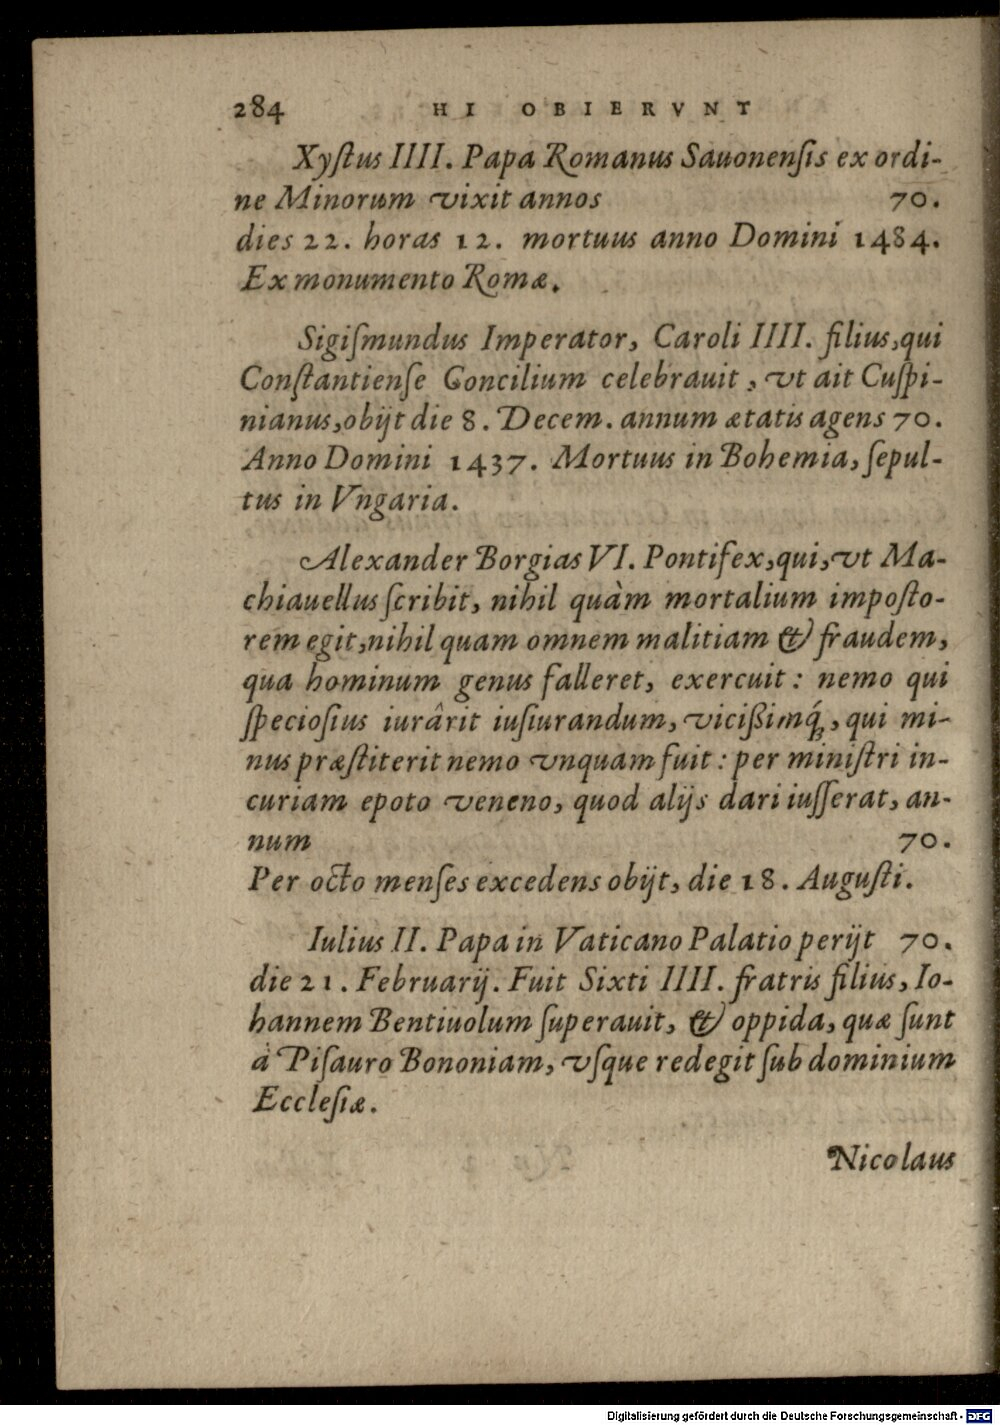 284 HI OBIERVNT
Xyſtus IIII. Papa Romanus Sauonenſis ex ordi-
ne Minorum vixit annos 70.
dies 22. horas 12. mortuus anno Domini 1484.
Ex monumento Romæ.
Sigiſmundus Imperator, Caroli IIII. filius,qui
Conſtantienſe Concilium celebrauit, vt ait Cuſpi-
nianus,obijt die 8. Decem. annum ætatis agens 70.
Anno Domini 1437. Mortuus in Bohemia, ſepul-
tus in Vngaria.
Alexander Borgias VI. Pontifex,qui,vt Ma-
chiauellus ſcribit, nihil quàm mortalium impoſto-
rem egit,nihil quam omnem malitiam & fraudem,
qua hominum genus falleret, exercuit: nemo qui
ſpecioſius iurârit iuſiurandum, vicißimq́;, qui mi-
nus præſtiterit nemo vnquam fuit: per miniſtri in-
curiam epoto veneno, quod alijs dari iuſſerat, an-
num 70.
Per octo menſes excedens obijt, die 18. Auguſti.
Iulius II. Papa in Vaticano Palatio perijt 70.
die 21. Februarij. Fuit Sixti IIII. fratris filius, Io-
hannem Bentiuolum ſuperauit, & oppida, quæ ſunt
à Piſauro Bononiam, vſque redegit ſub dominium
Eccleſiæ.
Nicolaus
Digitalisierung gefördert durch die Deutsche Forschungsgemeinschaft - DFG